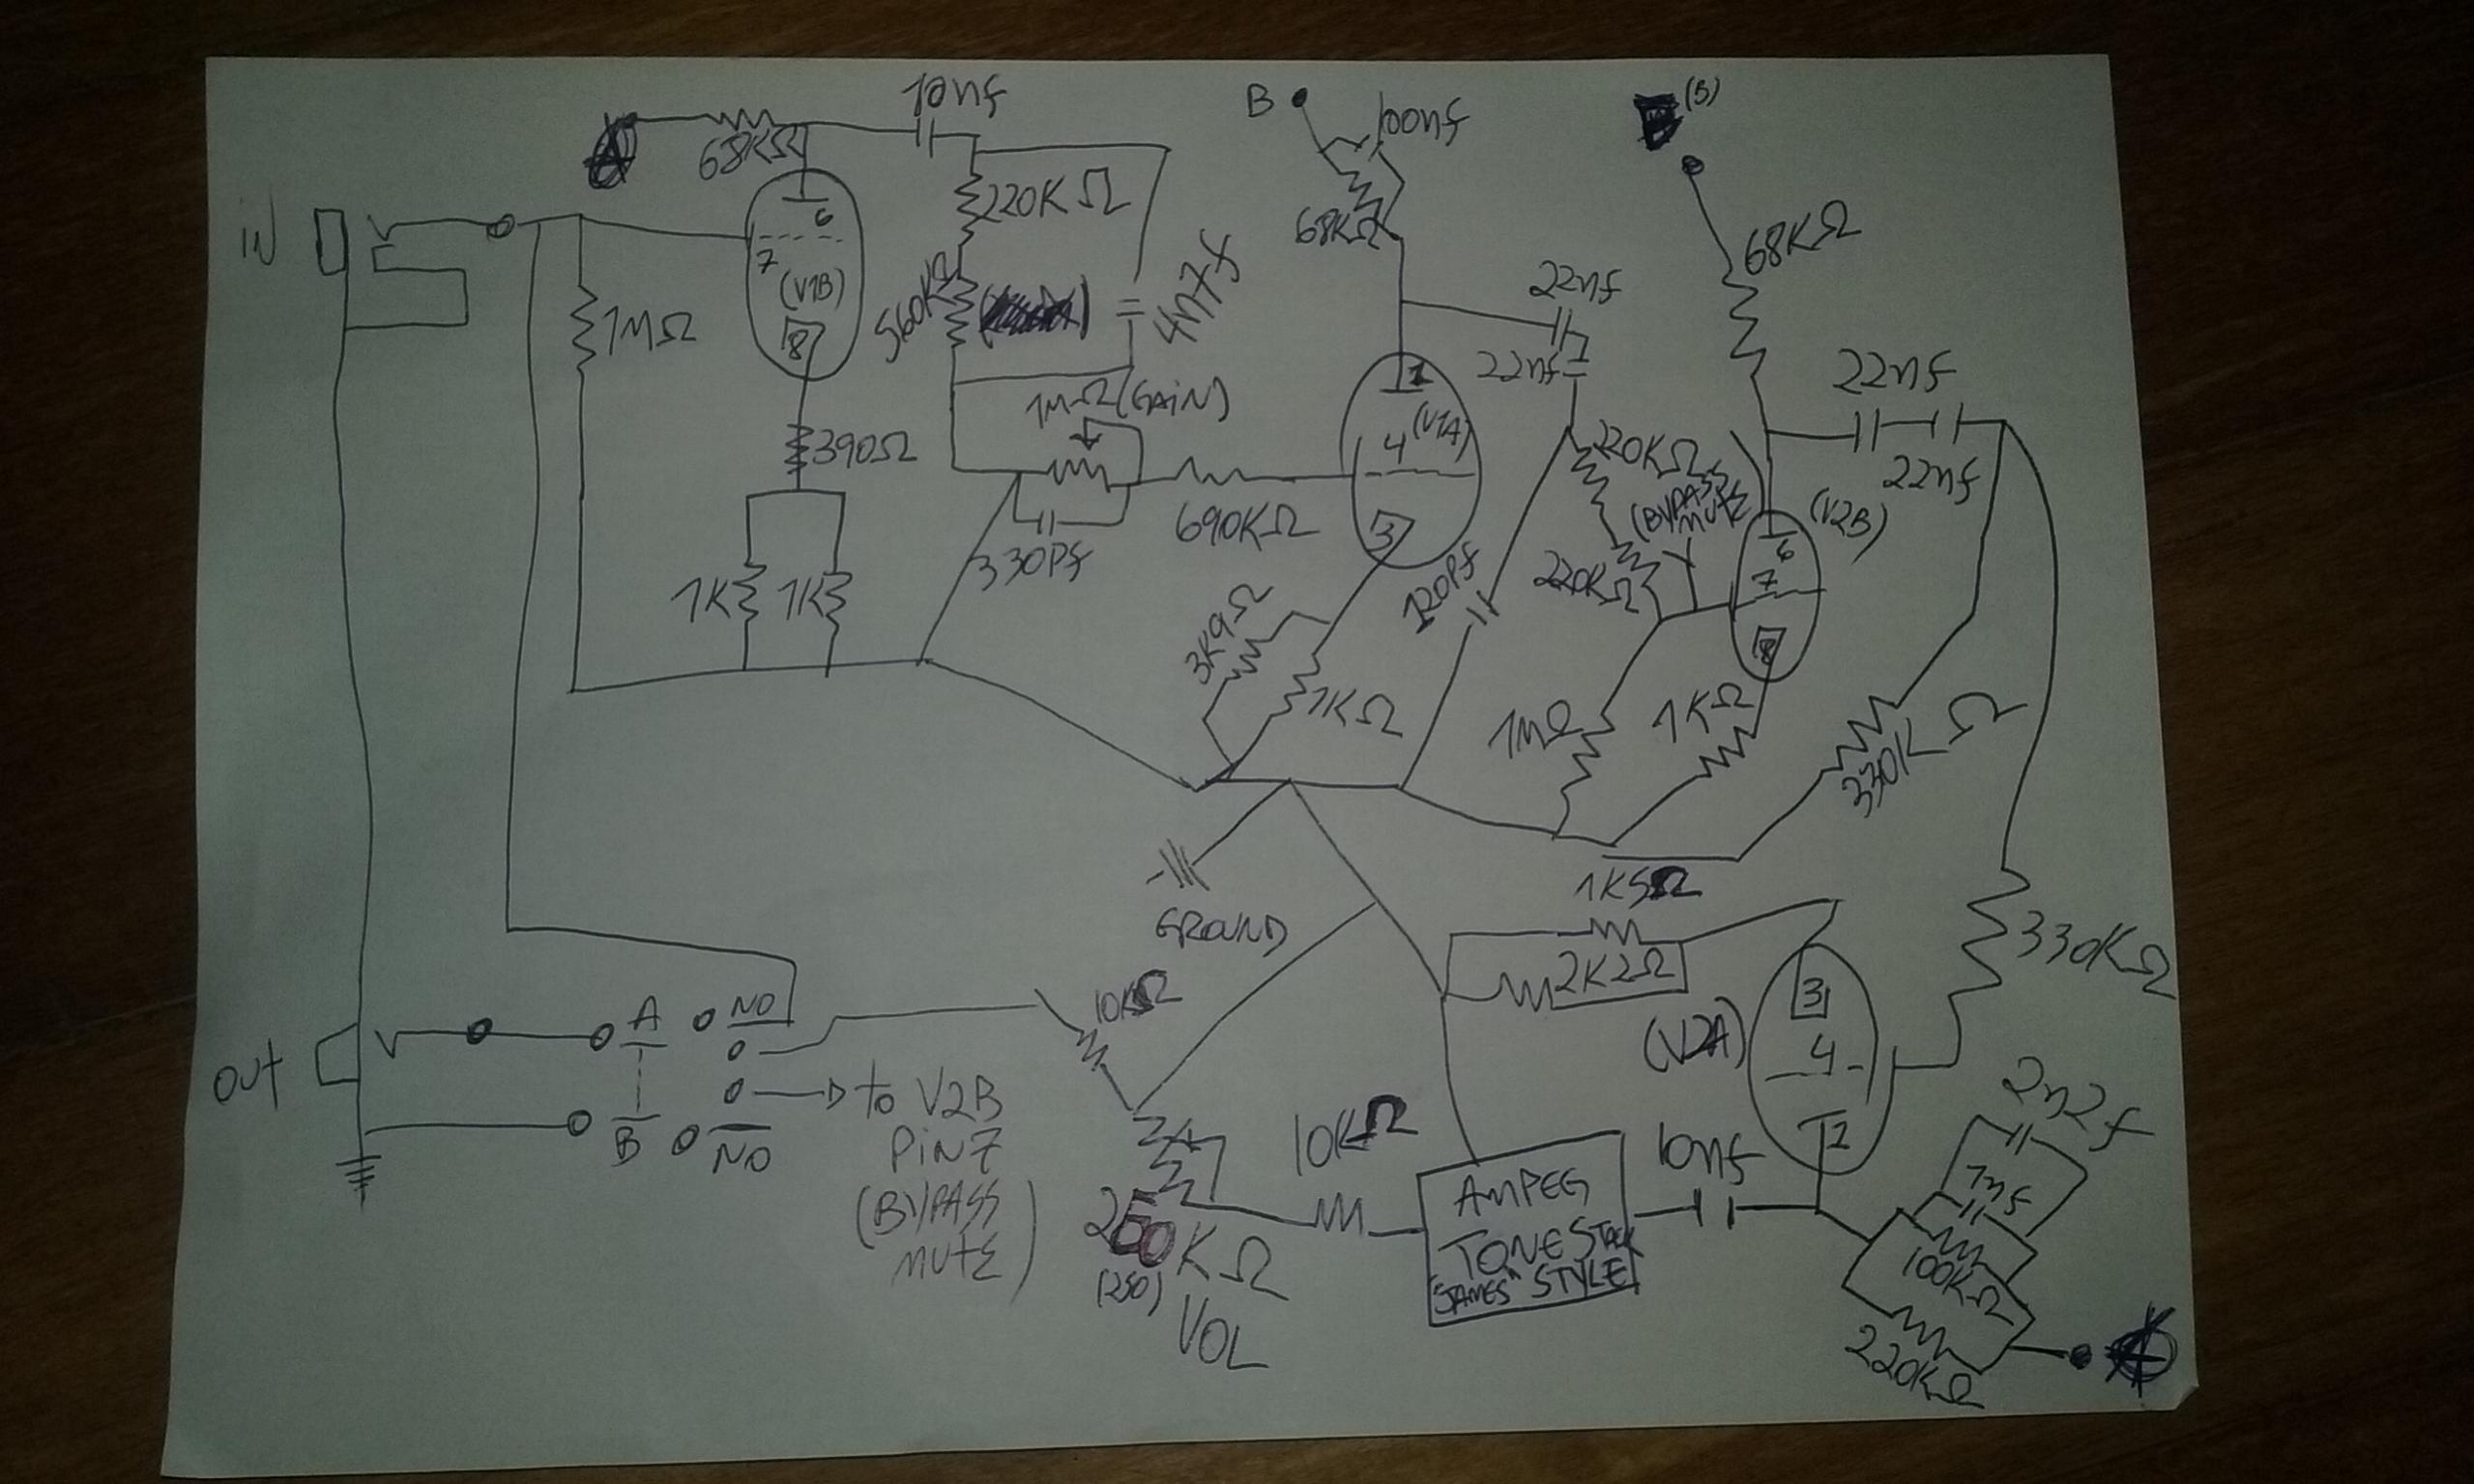 10nf
B
100nf
(B)
68KΩ
220KΩ
6
68KΩ
68KΩ
IN
7
(V1B)
8
560KΩ
4n7f
22nf
1MΩ
22nf
22nf
1MΩ(GAIN)
1
(V1A)
4
390Ω
220KΩ
22nf
(BYPASS
MUTE
(V2B)
690KΩ
3
6
7
330Pf
220KΩ
1K
1K
120Pf
8
3K9Ω
1KΩ
1MΩ
1KΩ
330KΩ
GROUND
1K5Ω
330KΩ
2K2Ω
10KΩ
3
(V2A)
4
A
NO
OUT
to V2B
PIN7
(BYPASS
MUTE)
B
NO
10KΩ
10nf
2
2n2f
AMPEG
TONESTACK
"JAMES" STYLE
250KΩ
(250)
VOL
100KΩ
220KΩ